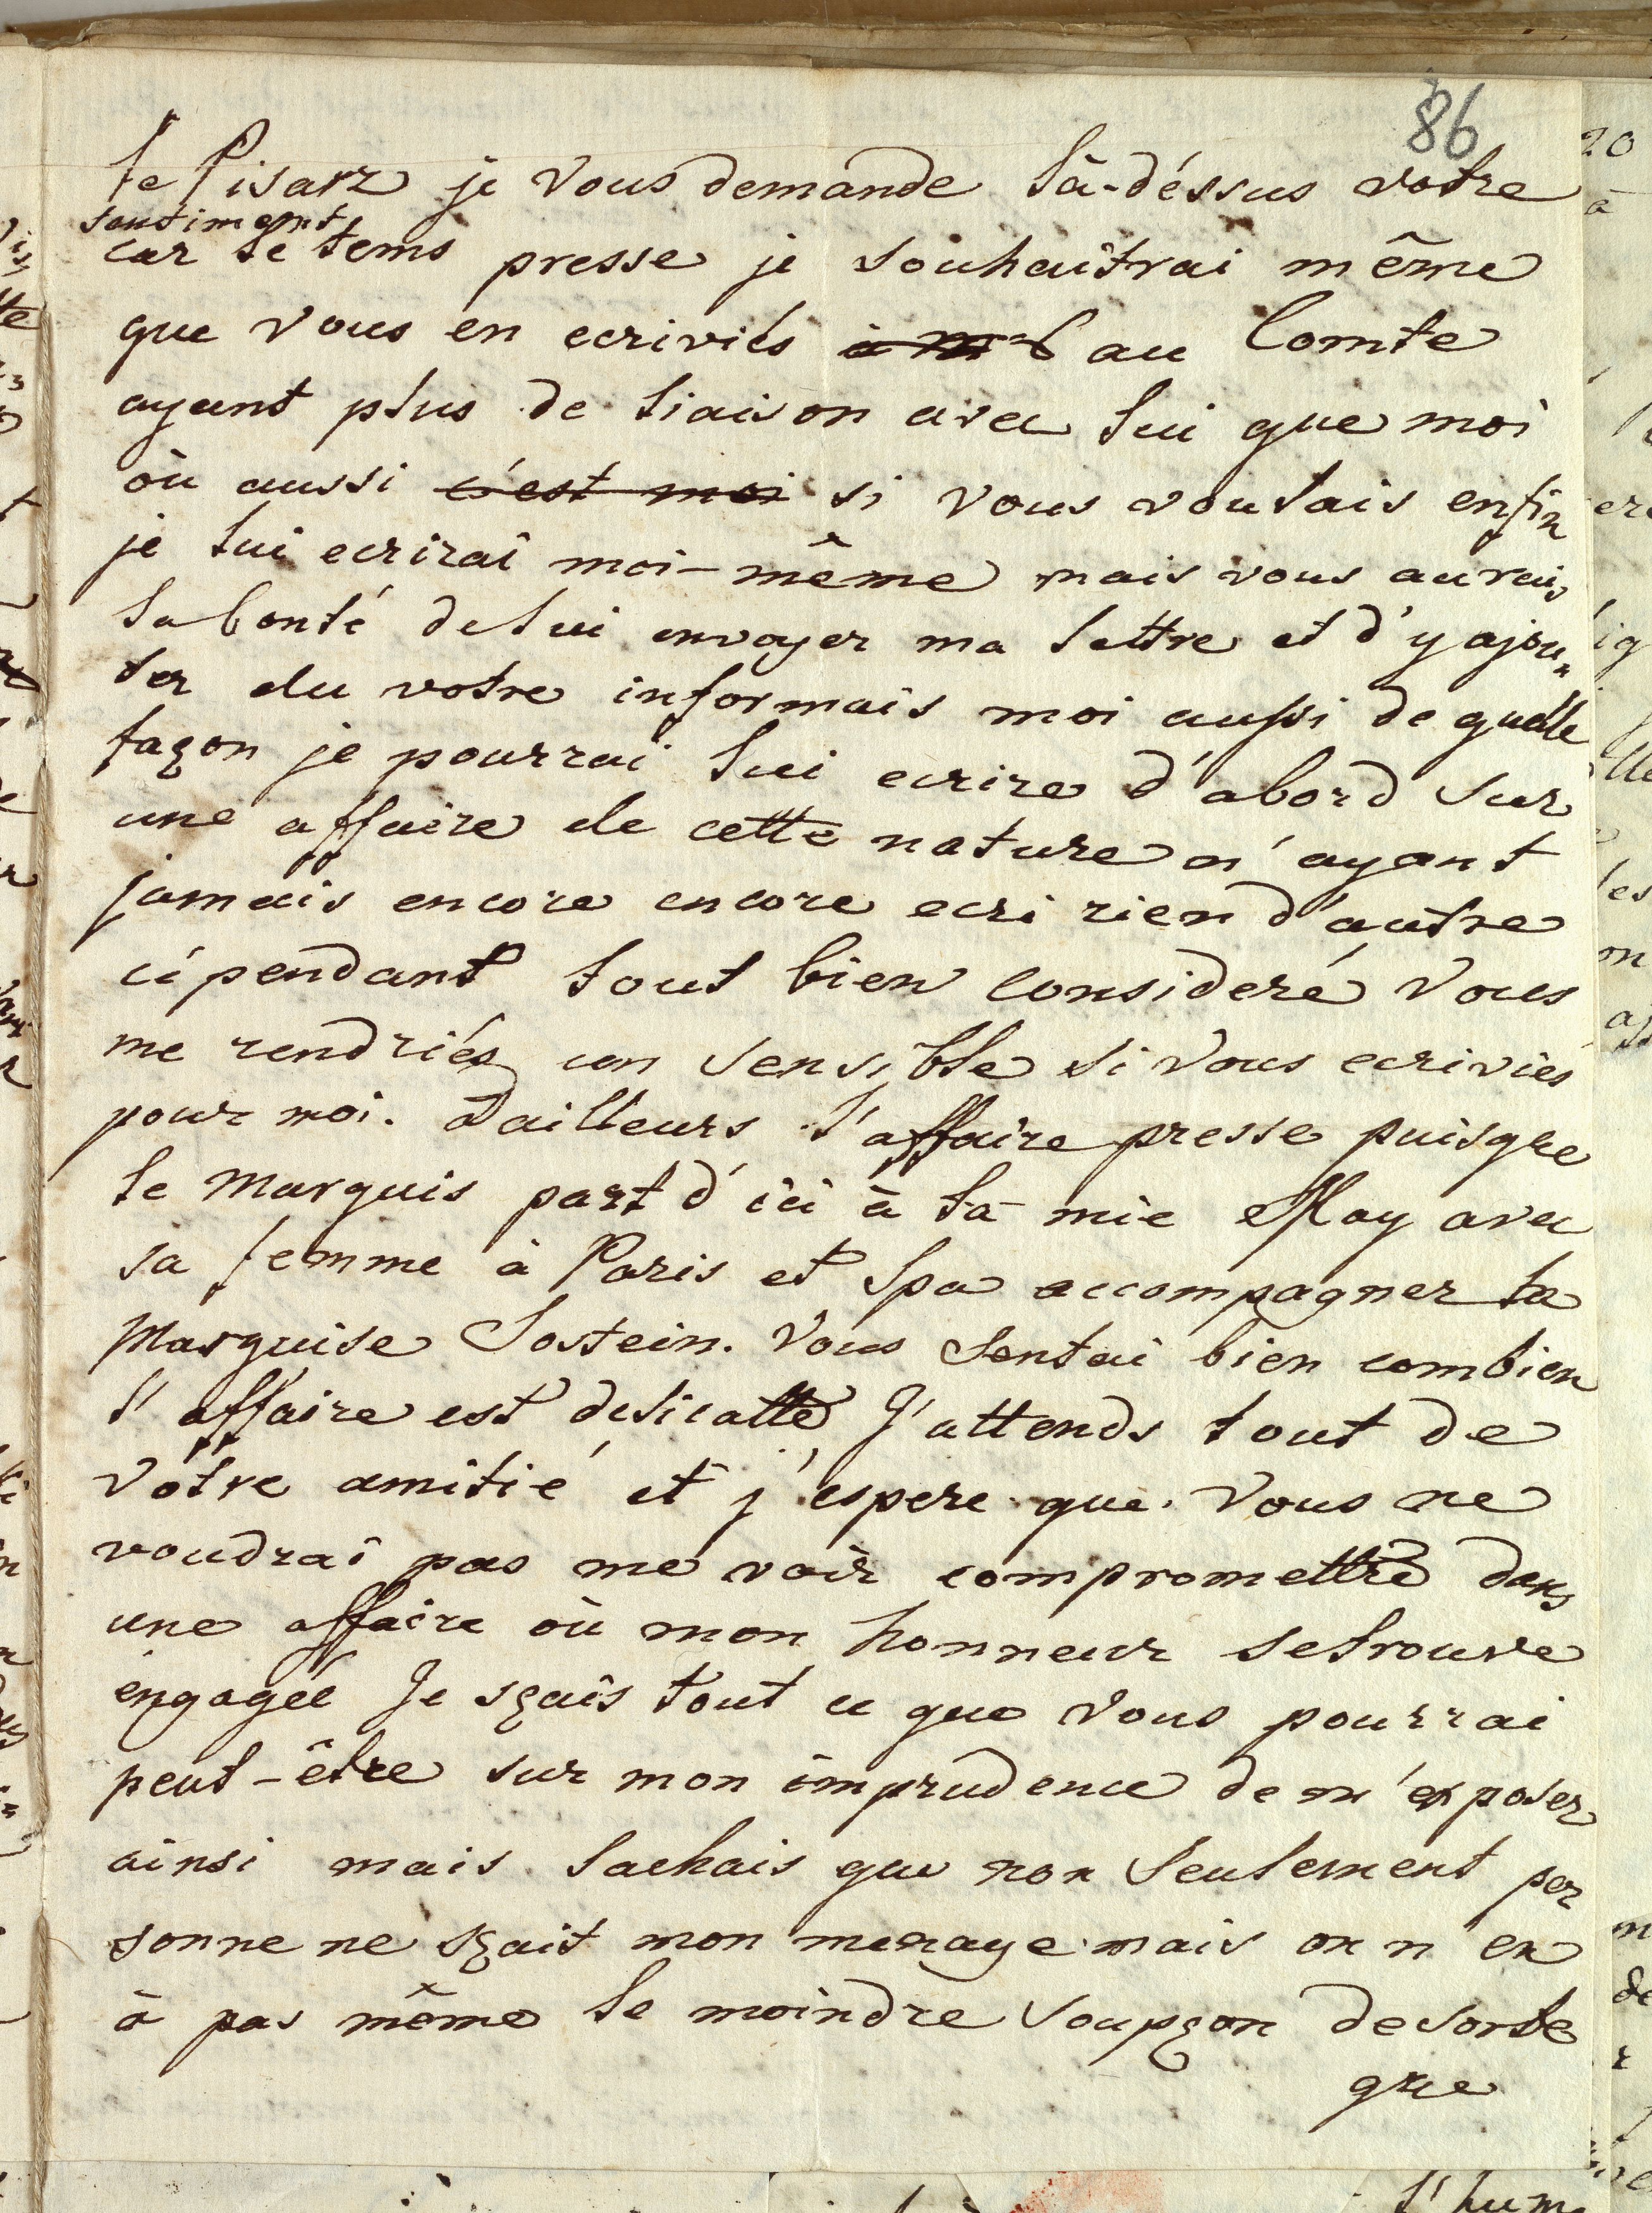 86
le Pisarz je vous demande là-déssus votre
sentiment
car le tems presse je souhaîtrai même
que vous en ecriviés au Comte
ayant plus de liaison avec lui que moi
où aussi c'est moi si vous voulais enfin
je lui ecrirai moi-même mais vous aurais
la bonté de lui envoyer ma lettre et d'y ajou„
ter du votre informais moi aussi de quelle
façon je pourrai lui ecrire d'abord sur
une affaire de cette nature n'ayant
jamais encore encore ecri rien d'autre
cépendant tout bien consideré vous
me rendriés un sensible si vous ecriviés
pour moi. Dailleurs l'affaire presse puisque
le Marquis part d'ici à la mie May avec
sa femme à Paris et Spa accompagner la
Marquise Sostein. Vous sentai bien combien
l'affaire est delicatte J'attends tout de
votre amitié et j'espere que vous ne
voudrai pas me voir compromettre dans
une affaire où mon honneur se trouve
engagée Je sçais tout ce que vous pourrai
peut-être sur mon imprudence de m'exposer
ainsi mais sachais que non seulement per
sonne ne sçait mon menage mais on n'en
à pas même le moindre soupçon de sorte
que